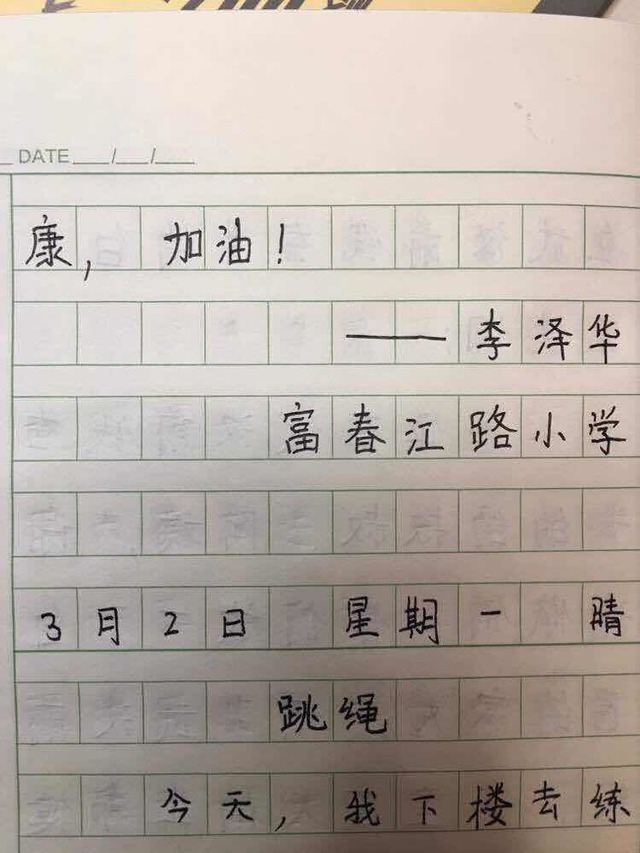 DATE___/___/___
康，加油！
——李泽华
富春江路小学
3月2日 星期一 晴
跳绳
今天，我下楼去练